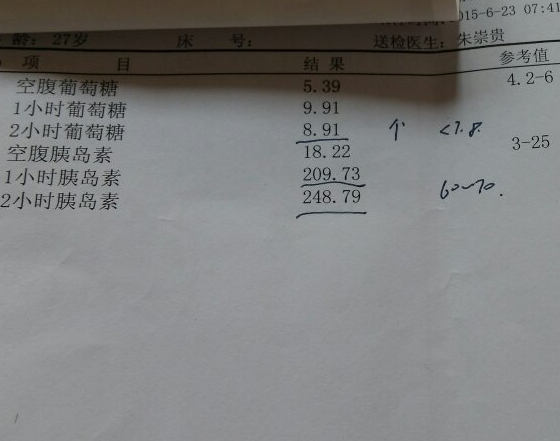 015-6-23 07:41
龄: 27岁 床 号: 送检医生: 朱崇贵
项 目 结 果 参考值
空腹葡萄糖 5.39 4.2-6
1小时葡萄糖 9.91
2小时葡萄糖 8.91 个 <7.8.
空腹胰岛素 18.22 3-25
1小时胰岛素 209.73
2小时胰岛素 248.79 60~70.